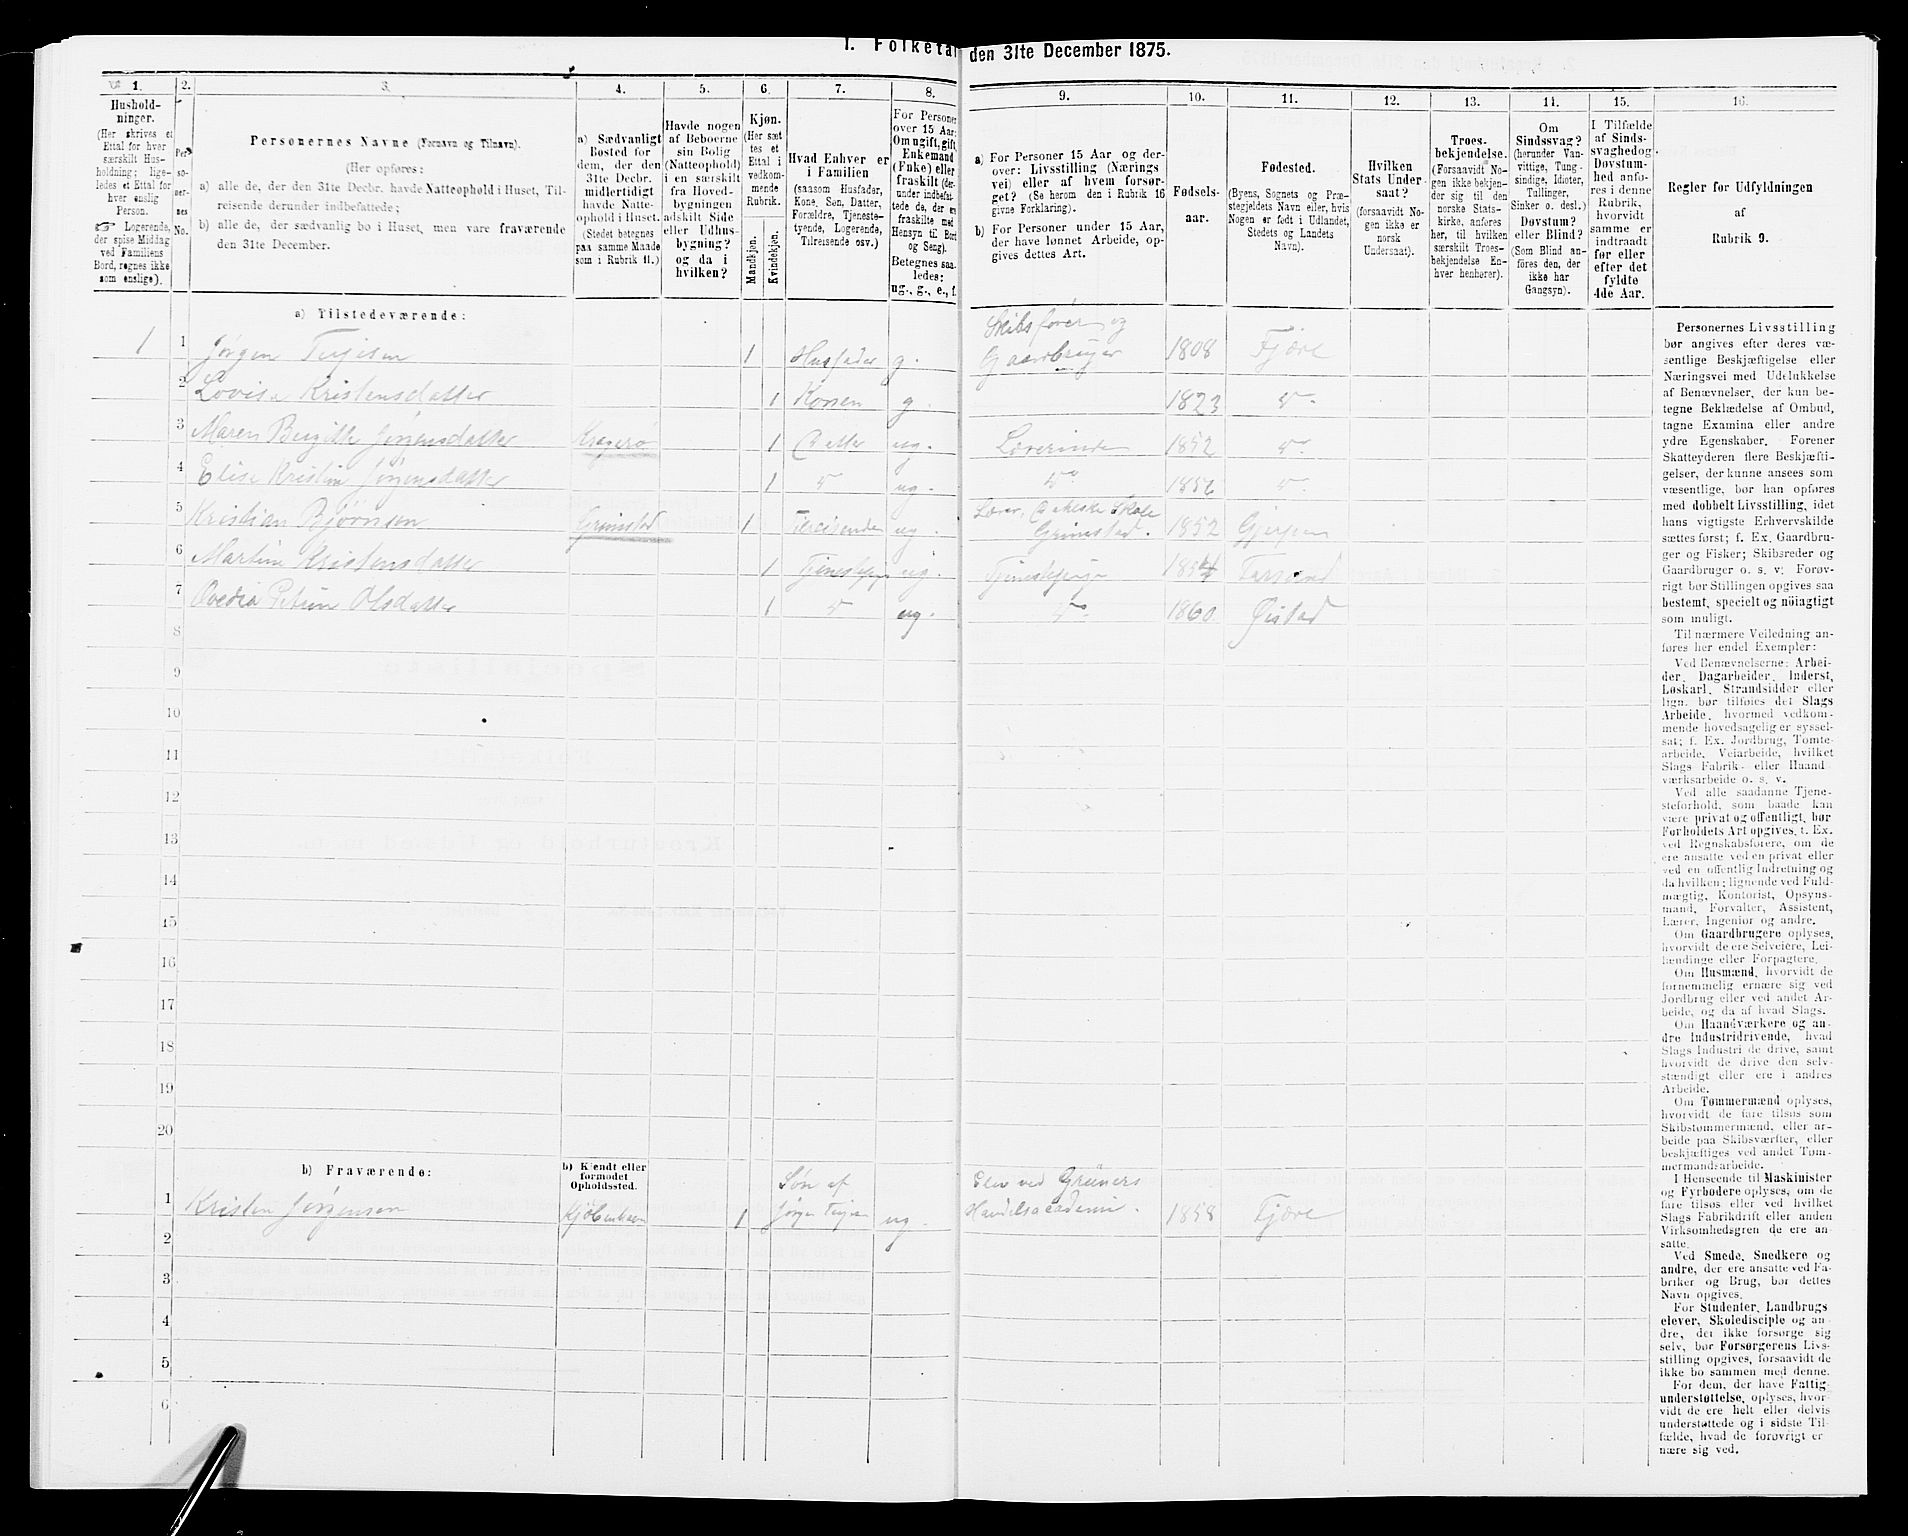 1. Folketal den 31te December 1875.
1.
Hushold-
ninger.
(Her skrives et
Ettal for hver
særskilt Hus-
holdning; lige-
ledes et Ettal for
hver enslig
Person.
☞ Logerende,
der spise Middag
ved Familiens
Bord, regnes ikke
som enslige).
2.
Per-
so-
ner-
nes
No.
3.
Personernes Navne (Fornavn og Tilnavn).
(Her opføres:
a) alle de, der den 31te Decbr. havde Natteophold i Huset, Til-
reisende derunder indbefattede;
b) alle de, der sædvanlig bo i Huset, men vare fraværende
den 31te December.
4.
a) Sædvanligt
Bosted for
dem, der den
31te Decbr.
midlertidigt
havde Natte-
ophold i Huset.
(Stedet betegnes
paa samme Maade
som i Rubrik 11.)
5.
Havde nogen
af Beboerne
sin Bolig
(Natteophold)
i en særskilt
fra Hoved-
bygningen
adskilt Side
eller Udhus-
bygning?
og da i
hvilken?
6.
Kjøn.
(Her sæt-
tes et
Ettal i
vedkom-
mende
Rubrik.
Mandkjøn.
Kvindekjøn.
7.
Hvad Enhver er
i Familien
(saasom Husfader,
Kone, Søn, Datter,
Forældre, Tjeneste-
tyende, Logerende,
Tilreisende osv.)
8.
For Personer
over 15 Aar:
Om ugift, gift,
Enkemand
(Enke) eller
fraskilt (der-
under indbefat-
tede de, der ere
fraskilte med
Hensyn til Bord
og Seng).
Betegnes saa-
ledes:
ug., g., e., f.
9.
a) For Personer 15 Aar og der-
over: Livsstilling (Nærings
vei) eller af hvem forsør-
get? (Se herom den i Rubrik 16
givne Forklaring).
b) For Personer under 15 Aar,
der have lønnet Arbeide, op-
gives dettes Art.
10.
Fødsels-
aar.
11.
Fødested.
(Byens, Sognets og Præ-
stegjeldets Navn eller, hvis
Nogen er født i Udlandet,
Stedets og Landets
Navn).
12.
Hvilken
Stats Under-
saat?
(forsaavidt No-
gen ikke er
norsk
Undersaat).
13.
Troes-
bekjendelse.
(Forsaavidt No-
gen ikke bekjen-
der sig til den
norske Stats-
kirke, anføres
her, til hvilken
særskilt Troes-
bekjendelse En-
hver henhører).
14.
Om
Sindssvag?
(herunder Van-
vittige, Tung-
sindige, Idioter,
Tullinger,
Sinker o. desl.)
Døvstum?
eller Blind?
(Som Blind an-
føres den, der
ikke har
Gangsyn).
15.
I Tilfælde
af Sinds-
svaghed og
Døvstum-
hed anfø-
res i denne
Rubrik,
hvorvidt
samme er
indtraadt
før eller
efter det
fyldte
4de Aar.
16.
Regler for Udfyldningen
af
Rubrik 9.
a) Tilstedeværende:
1 1 Jørgen Terjesen 1 Husfader g. Skibsfører og Gaardbruger 1808 Fjære
2 Lovise Kristensdatter 1 Konen g. 1823 do
3 Maren Birgitte Jørgensdatter Kragerø 1 Datter ug. Lærerinde 1852 do
4 Elise Kristine Jørgensdatter 1 do ug. do do
5 Kristian Bjørnsen Grimstad 1 Tilreisende ug. Lærer, Skole Grimstad. 1852 Gjerpen
6 Martine Kristensdatter 1 ug. 1854 Farsund
7 Ovedia Petrine Olsdatter 1 do ug. do 1860 Øistad
8
9
10
11
12
13
14
15
16
17
18
19
20
b) Fraværende:
b) Kjendt eller
formodet
Opholdssted.
1 Kristen Jørgensen Kjøbenhavn 1 Søn af Jørgen Terjesen ug. Elev ved Grüners Handelsacademi. 1858 Fjære
2
3
4
5
6
Personernes Livsstilling
bør angives efter deres væ-
sentlige Beskjæftigelse eller
Næringsvei med Udelukkelse
af Benævnelser, der kun be-
tegne Beklædelse af Ombud,
tagne Examina eller andre
ydre Egenskaber. Forener
Skatteyderen flere Beskjæfti-
gelser, der kunne ansees som
væsentlige, bør han opføres
med dobbelt Livsstilling, idet
hans vigtigste Erhvervskilde
sættes først; f. Ex. Gaardbru-
ger og Fisker; Skibsreder og
Gaardbruger o. s. v. Forøv-
rigt bør Stillingen opgives saa
bestemt, specielt og nøiagtigt
som muligt.
Til nærmere Veiledning an-
føres her endel Exempler:
Ved Benævnelserne: Arbei-
der, Dagarbeider, Inderst,
Løskarl, Strandsidder eller
lign. bør tilføies det Slags
Arbeide, hvormed vedkom-
mende hovedsagelig er syssel-
sat; f. Ex. Jordbrug, Tomte-
arbeide, Veiarbeide, hvilket
Slags Fabrik- eller Haand-
værksarbeide o. s. v.
Ved alle saadanne Tjene-
steforhold, som baade kan
være privat og offentligt, bør
Forholdets Art opgives, t. Ex.
ved Regnskabsførere, om de
ere ansatte ved en privat eller
ved en offentlig Indretning og
da hvilken; lignende ved Fuld-
mægtig, Kontorist, Opsyns-
mand, Forvalter, Assistent,
Lærer, Ingeniør og andre.
Om Gaardbrugere oplyses,
hvorvidt de ere Selveiere, Lei-
lændinge eller Forpagtere.
Om Husmænd, hvorvidt de
fornemmelig ernære sig ved
Jordbrug eller ved andet Ar-
beide, og da af hvad Slags.
Om Haandværkere og an-
dre Industridrivende, hvad
Slags Industri de drive, samt
hvorvidt de drive den selv-
stændigt eller ere i andres
Arbeide.
Om Tømmermænd oplyses,
hvorvidt de fare tilsøs som
Skibstømmermænd, eller ar-
beide paa Skibsværfter, eller
beskjæftiges ved andet Tøm-
mermandsarbeide.
I Henseende til Maskinister
og Fyrbødere oplyses, om de
fare tilsøs eller ved hvilket
Slags Fabrikdrift eller anden
Virksomhedsgren de ere an-
satte.
Ved Smede, Snedkere og
andre, der ere ansatte ved Fa-
briker og Brug, bør dettes
Navn opgives.
For Studenter, Landbrugs
elever, Skoledisciple og an-
dre, der ikke forsørge sig
selv, bør Forsørgerens Livs-
stilling opgives, forsaavidt de
ikke bo sammen med denne.
For dem, der have Fattig-
understøttelse, oplyses, hvor-
vidt de ere helt eller delvis
understøttede og i sidste Til-
fælde, hvad de forøvrigt er-
nære sig ved.